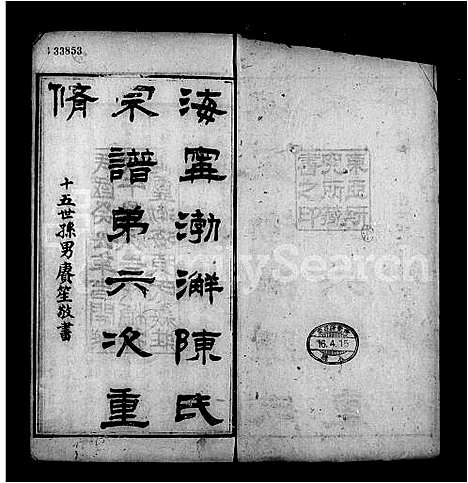 海寧渤澥陳氏
宗譜弟六次重
脩
十五世孫男賡笙敬書
33853
東亞研
究所藏
書之印
16.4.15
FamilySearch